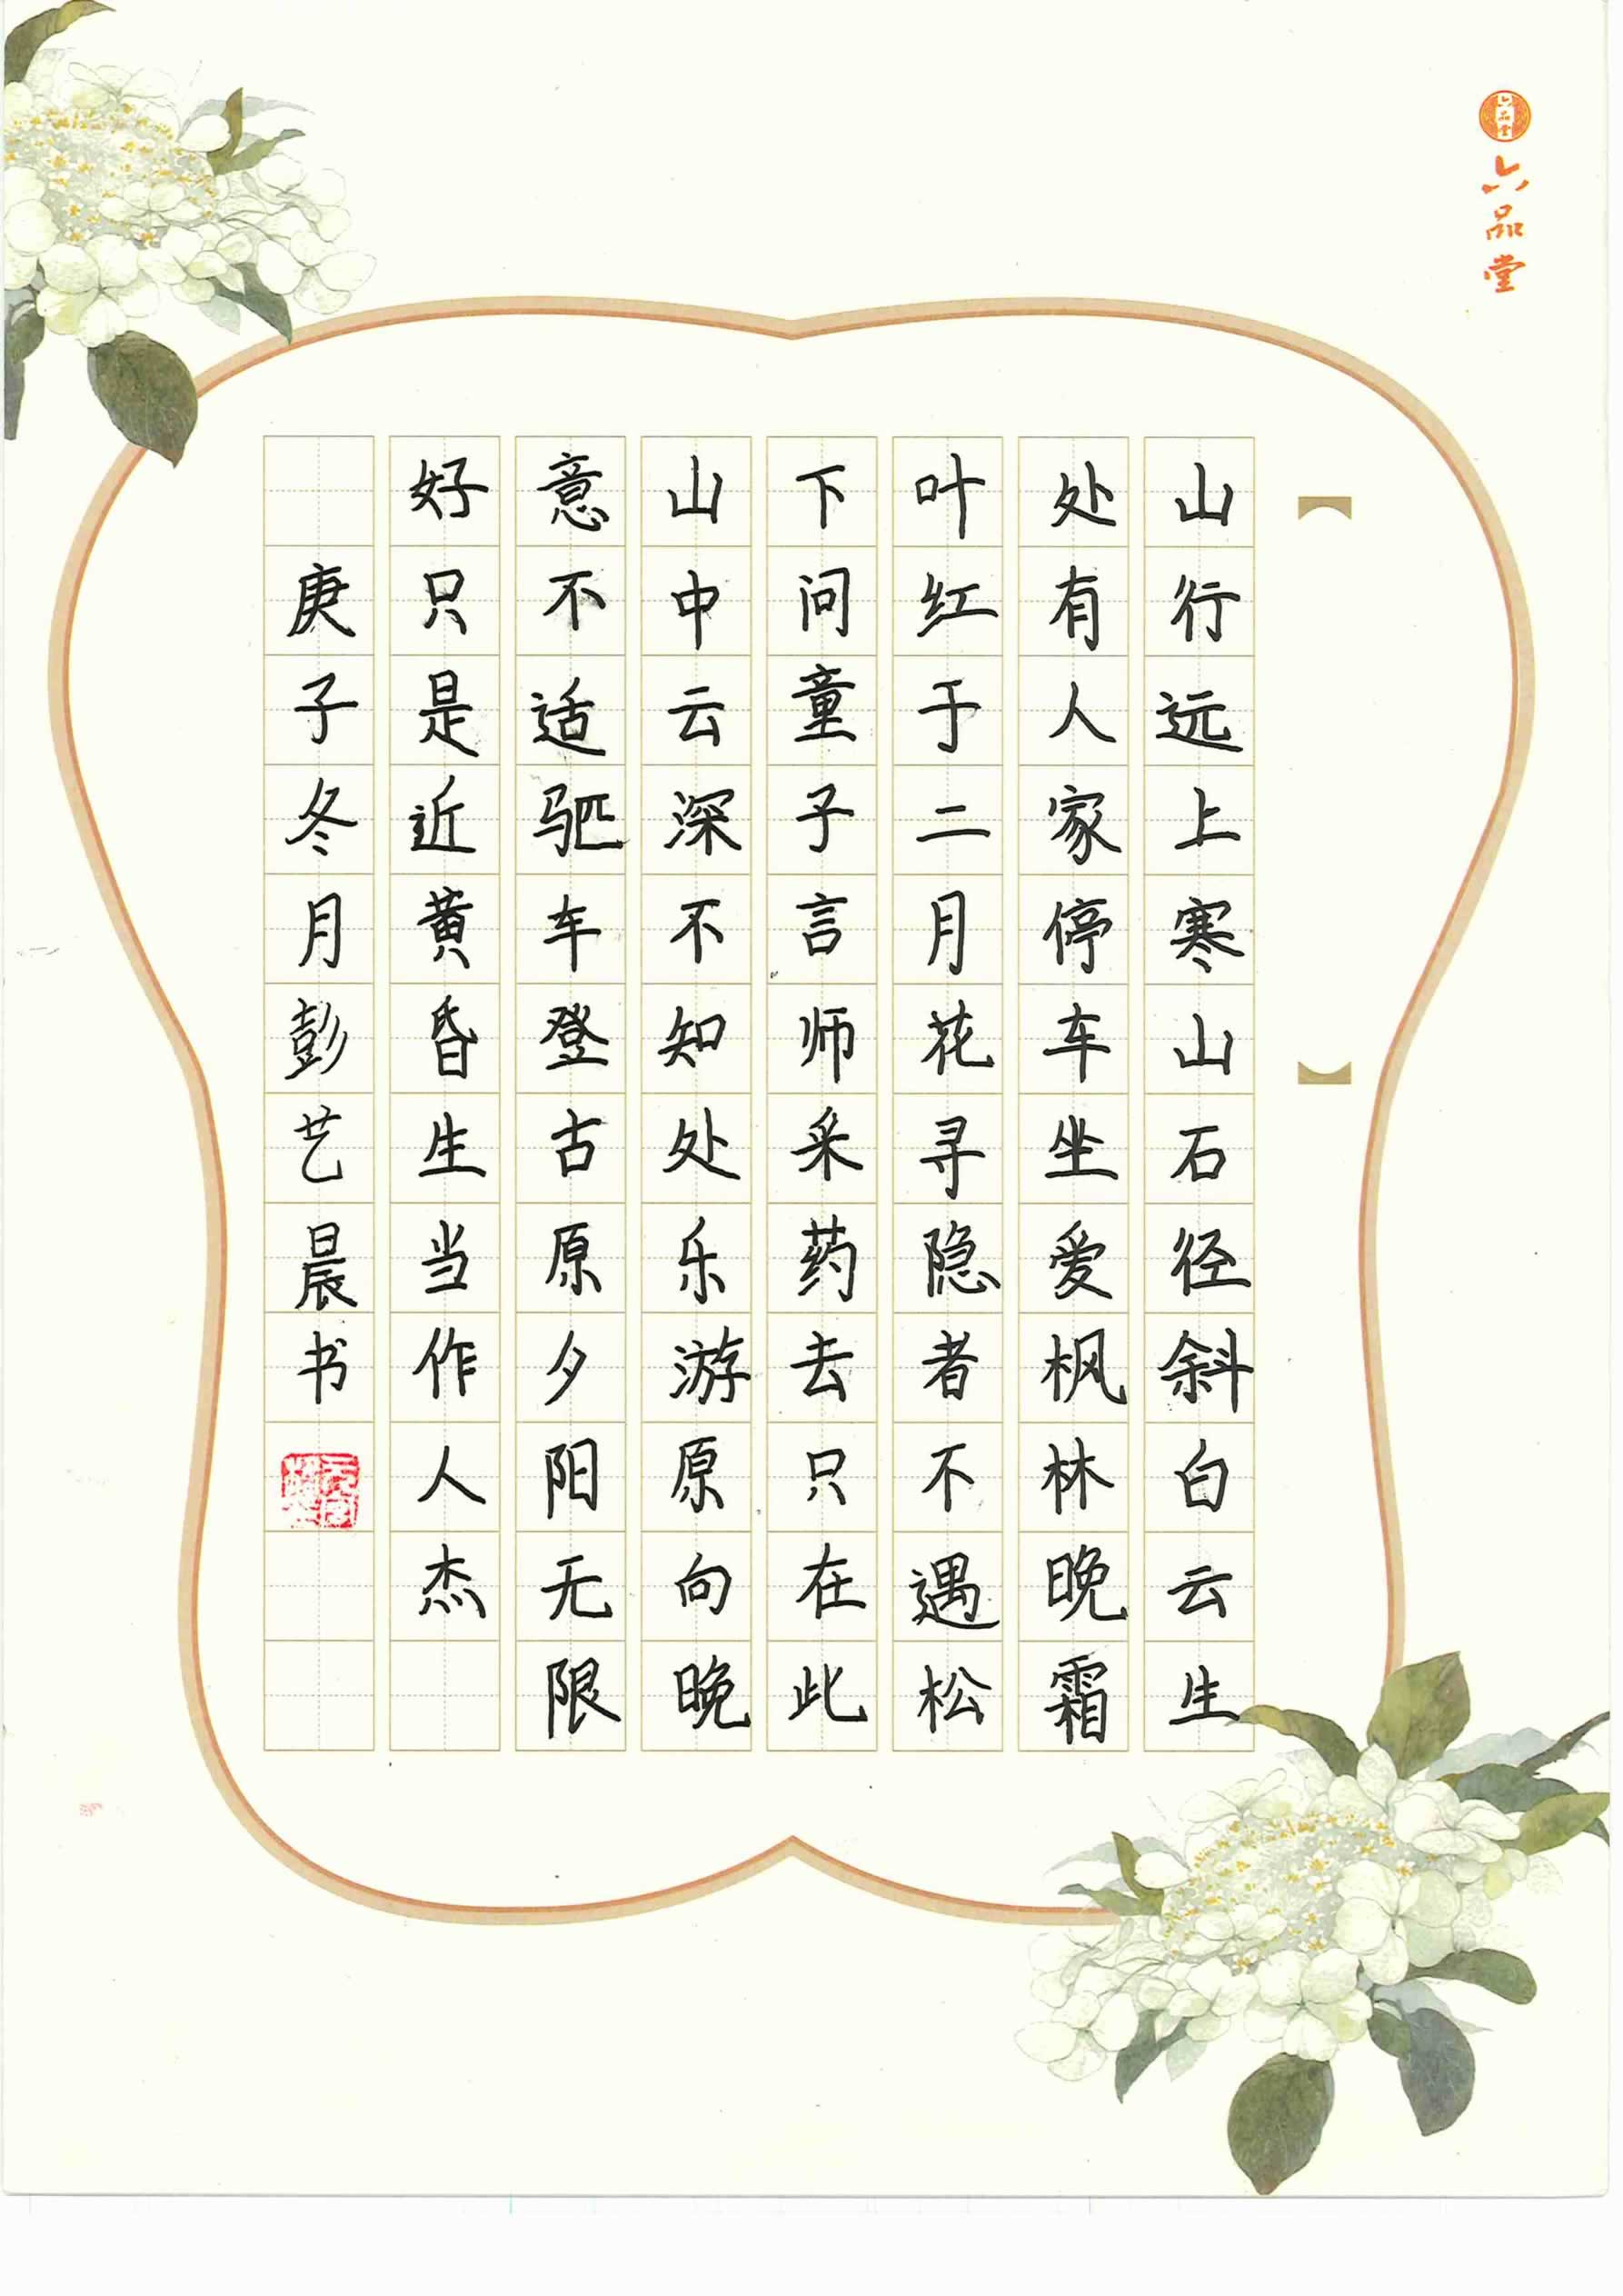 六品堂
六品堂
山行远上寒山石径斜白云生
处有人家停车坐爱枫林晚霜
叶红于二月花寻隐者不遇松
下问童子言师采药去只在此
山中云深不知处乐游原向晚
意不适驱车登古原夕阳无限
好只是近黄昏生当作人杰
庚子冬月彭艺晨书